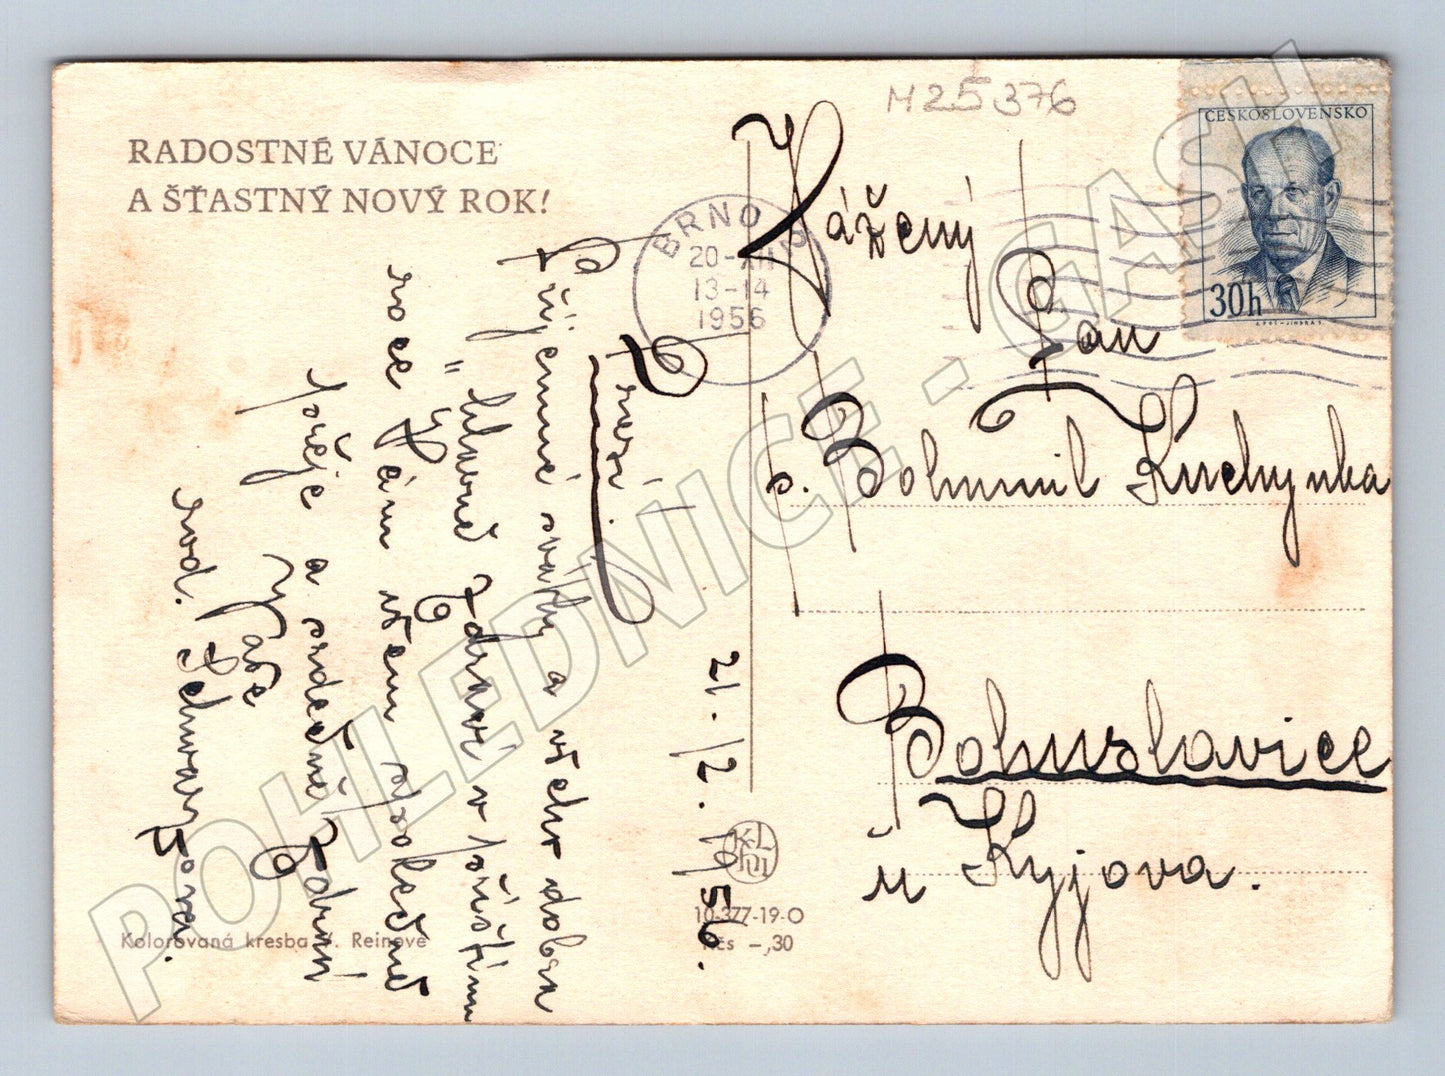 RADOSTNÉ VÁNOCE
A ŠŤASTNÝ NOVÝ ROK!
M25376
ČESKOSLOVENSKO
30h
BRNO
20-XII
13-14
1956
Vážený
Pan
p. Bohumil Kuchynka
Bohuslavice
u Kyjova.
21. 12. 1956.
Drazí!
Příjemné svátky a všeho dobra
hlavně zdraví v příštím
roce Vám všem společně
přeje a srdečně zdraví
Vaše
rod. Schwarzova.
10-377-19-O
Kčs -,30
Kolorovaná kresba Reinové
POHLEDNICE - GASH